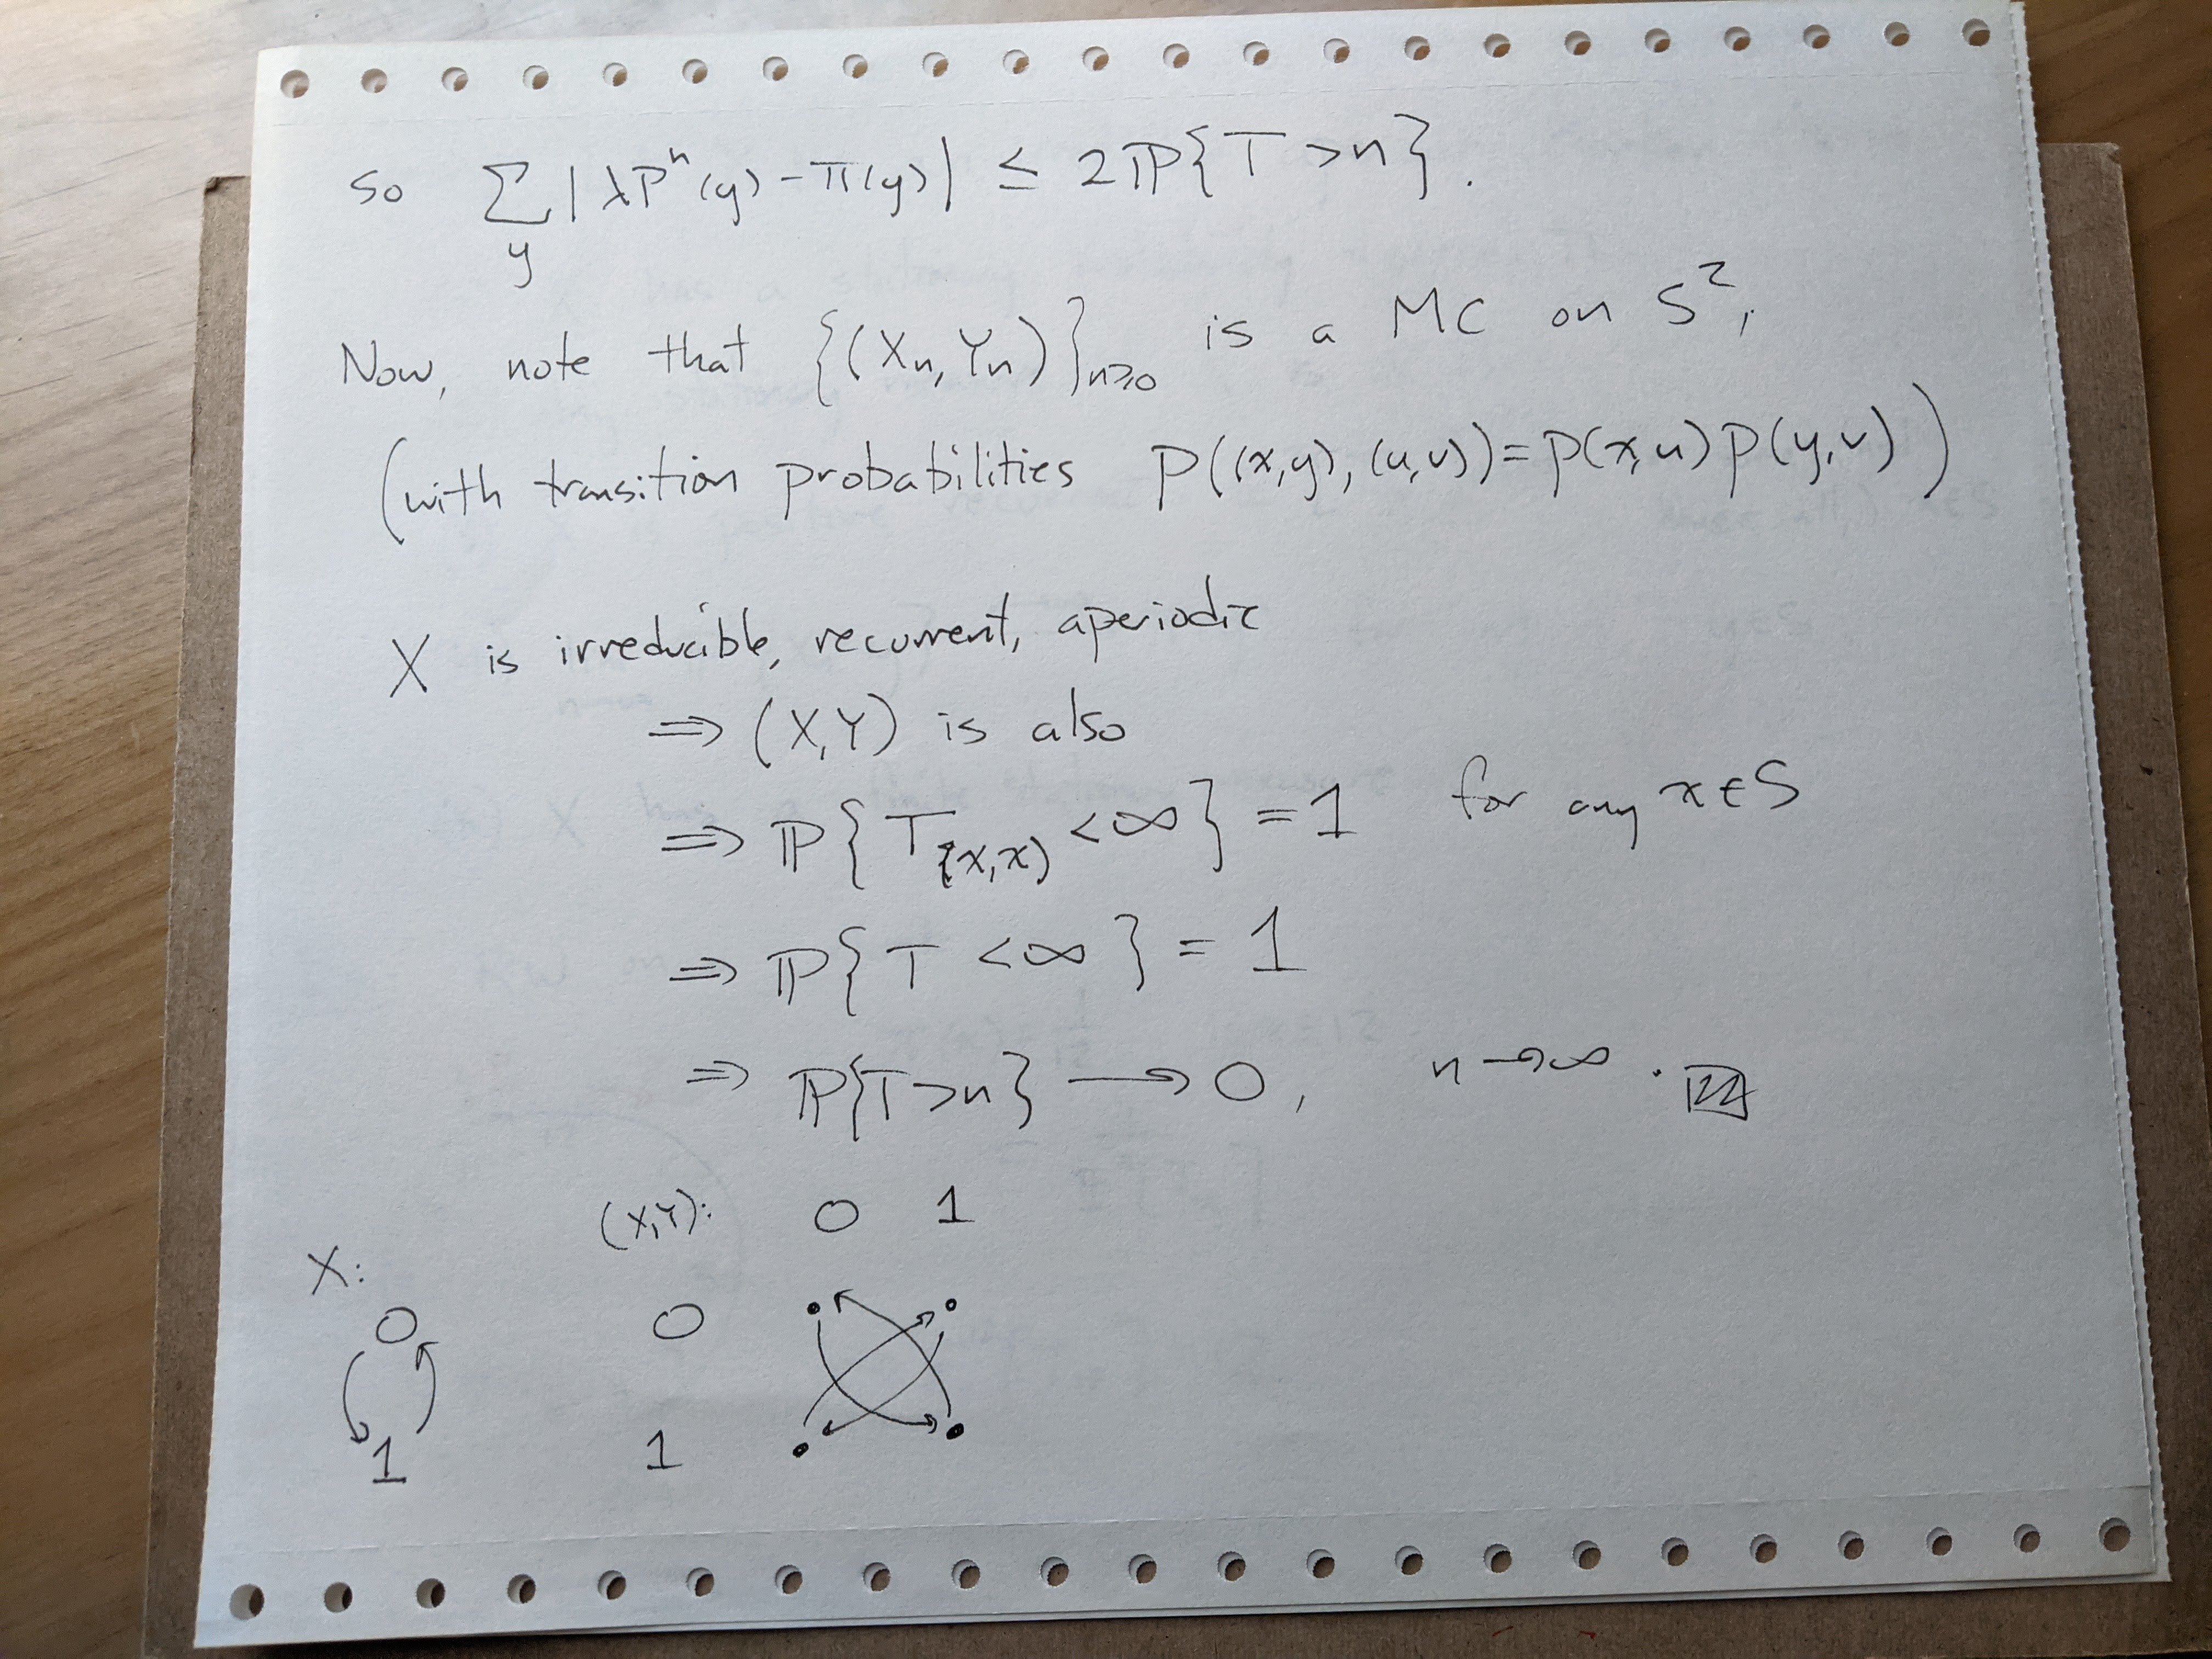 so ∑_y |λPⁿ(y) - π(y)| ≤ 2ℙ{T > n}.
Now, note that {(Xₙ, Yₙ)}_{n≥0} is a MC on S²,
(with transition probabilities P((x,y), (u,v)) = P(x,u) P(y,v))
X is irreducible, recurrent, aperiodic
⇒ (X,Y) is also
⇒ ℙ{T_{(x,x)} < ∞} = 1 for any x ∈ S
⇒ ℙ{T < ∞} = 1
⇒ ℙ{T > n} → 0, n → ∞.
(X,Y): 0 1
X:
0 0
1 1